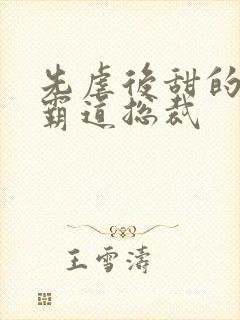 先虐後甜的
霸道總裁
王雪濤